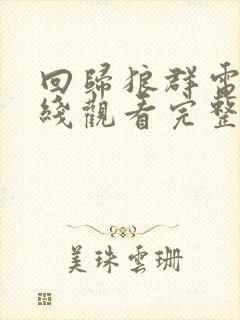 回歸狼群電
綫觀看完整
美珠雲珊